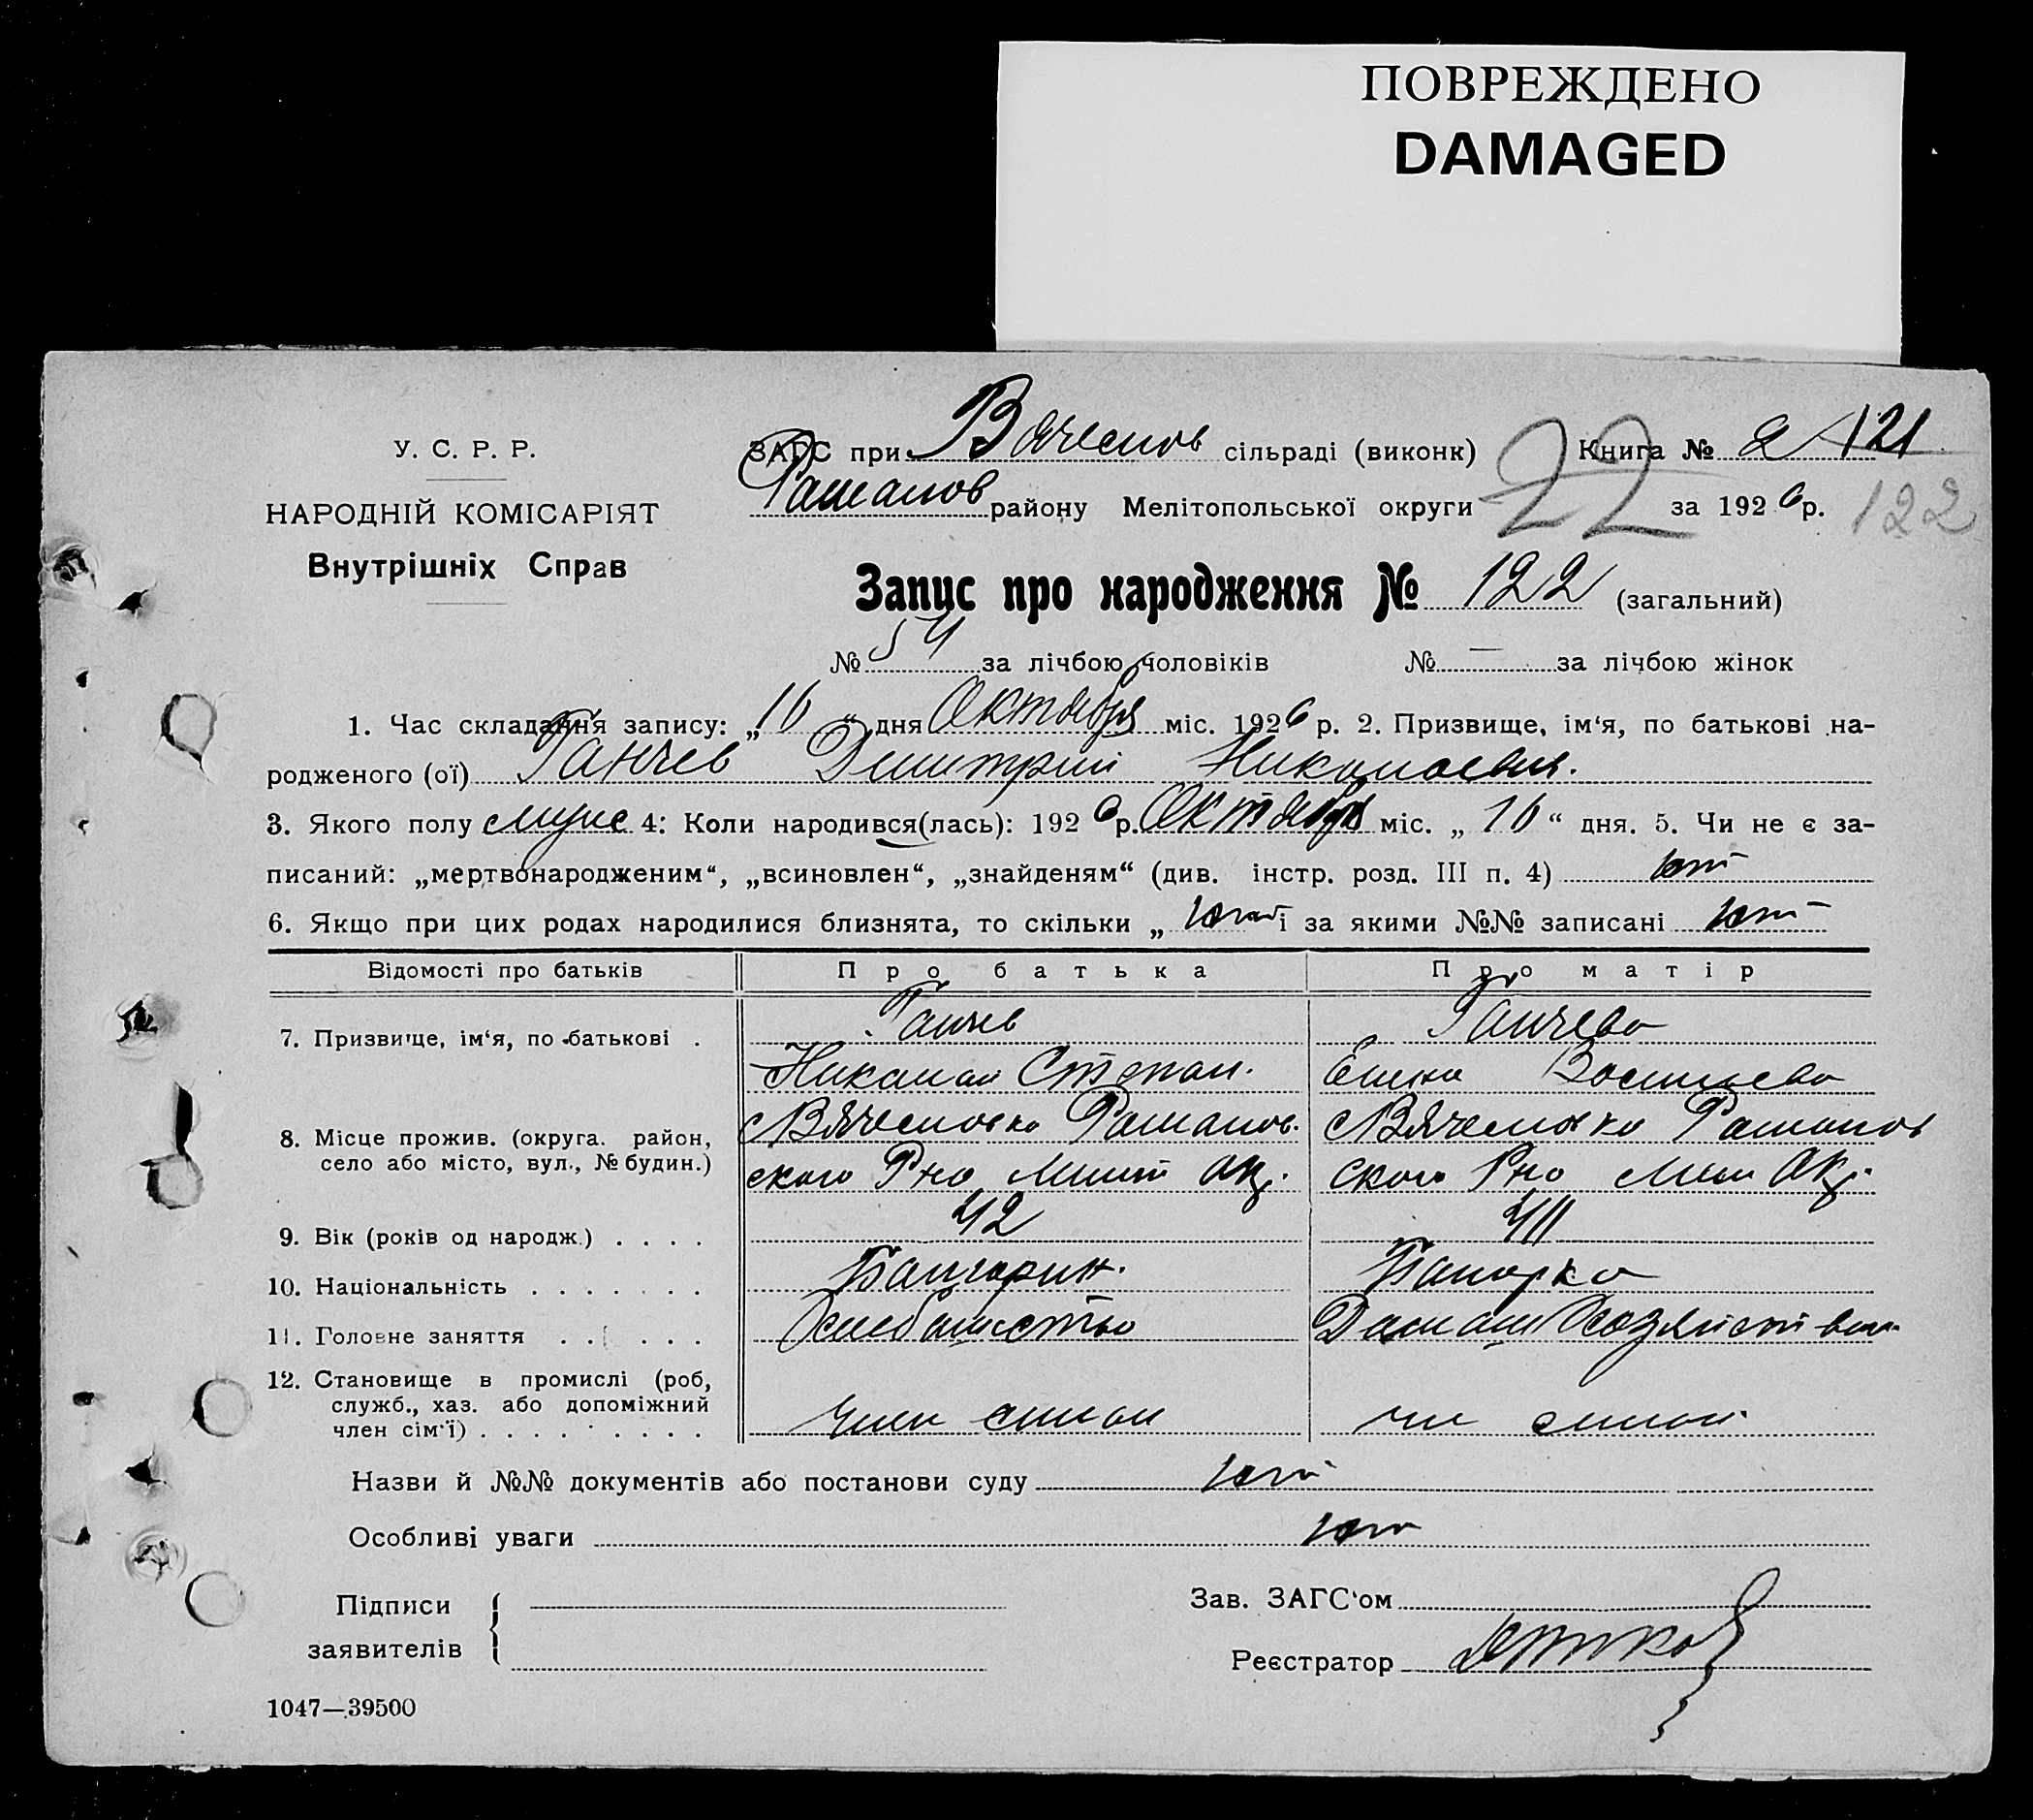 ПОВРЕЖДЕНО
DAMAGED
У. С. Р. Р.
НАРОДНІЙ КОМІСАРІЯТ
Внутрішніх Справ
ЗАГС при Вячеслов сільраді (виконк) Книга № 2 121
Романов району Мелітопольської округи 22 за 1926 р. 122
Запис про народження № 122 (загальний)
№ 54 за лічбою чоловіків № — за лічбою жінок
1. Час складання запису: „16“ дня Октября міс. 1926 р. 2. Призвище, ім‘я, по батькові на-
родженого (ої) Ганчев Дмитрий Николаевич.
3. Якого полу муж 4: Коли народився(лась): 1926 р. Октября міс. „16“ дня. 5. Чи не є за-
писаний: „мертвонародженим“, „всиновлен“, „знайденям“ (див. інстр. розд. III п. 4) нет
6. Якщо при цих родах народилися близнята, то скільки „ нет і за якими №№ записані нет
Відомості про батьків Про батька Про матір
7. Призвище, ім‘я, по батькові . Ганчев Ганчева
Николай Степан. Елена Васильева
8. Місце прожив. (округа. район, с Вячеславка Романов. с Вячеславка Романов
село або місто, вул., № будин.) ского Р-на Мелит окр. ского Р-на Мели окр.
9. Вік (років од народж.) . . . . 42 41
10. Національність . . . . . . . Болгарин. Болгарка
11. Головне заняття . . . . . Хлебопашество Домаш Хозяйств
12. Становище в промислі (роб,
служб., хаз. або допоміжний
член сім‘ї) . . . . . . . . член семьи чл семьи
Назви й №№ документів або постанови суду нет
Особливі уваги нет
Підписи Зав. ЗАГС‘ом
заявителів Реєстратор
1047—39500